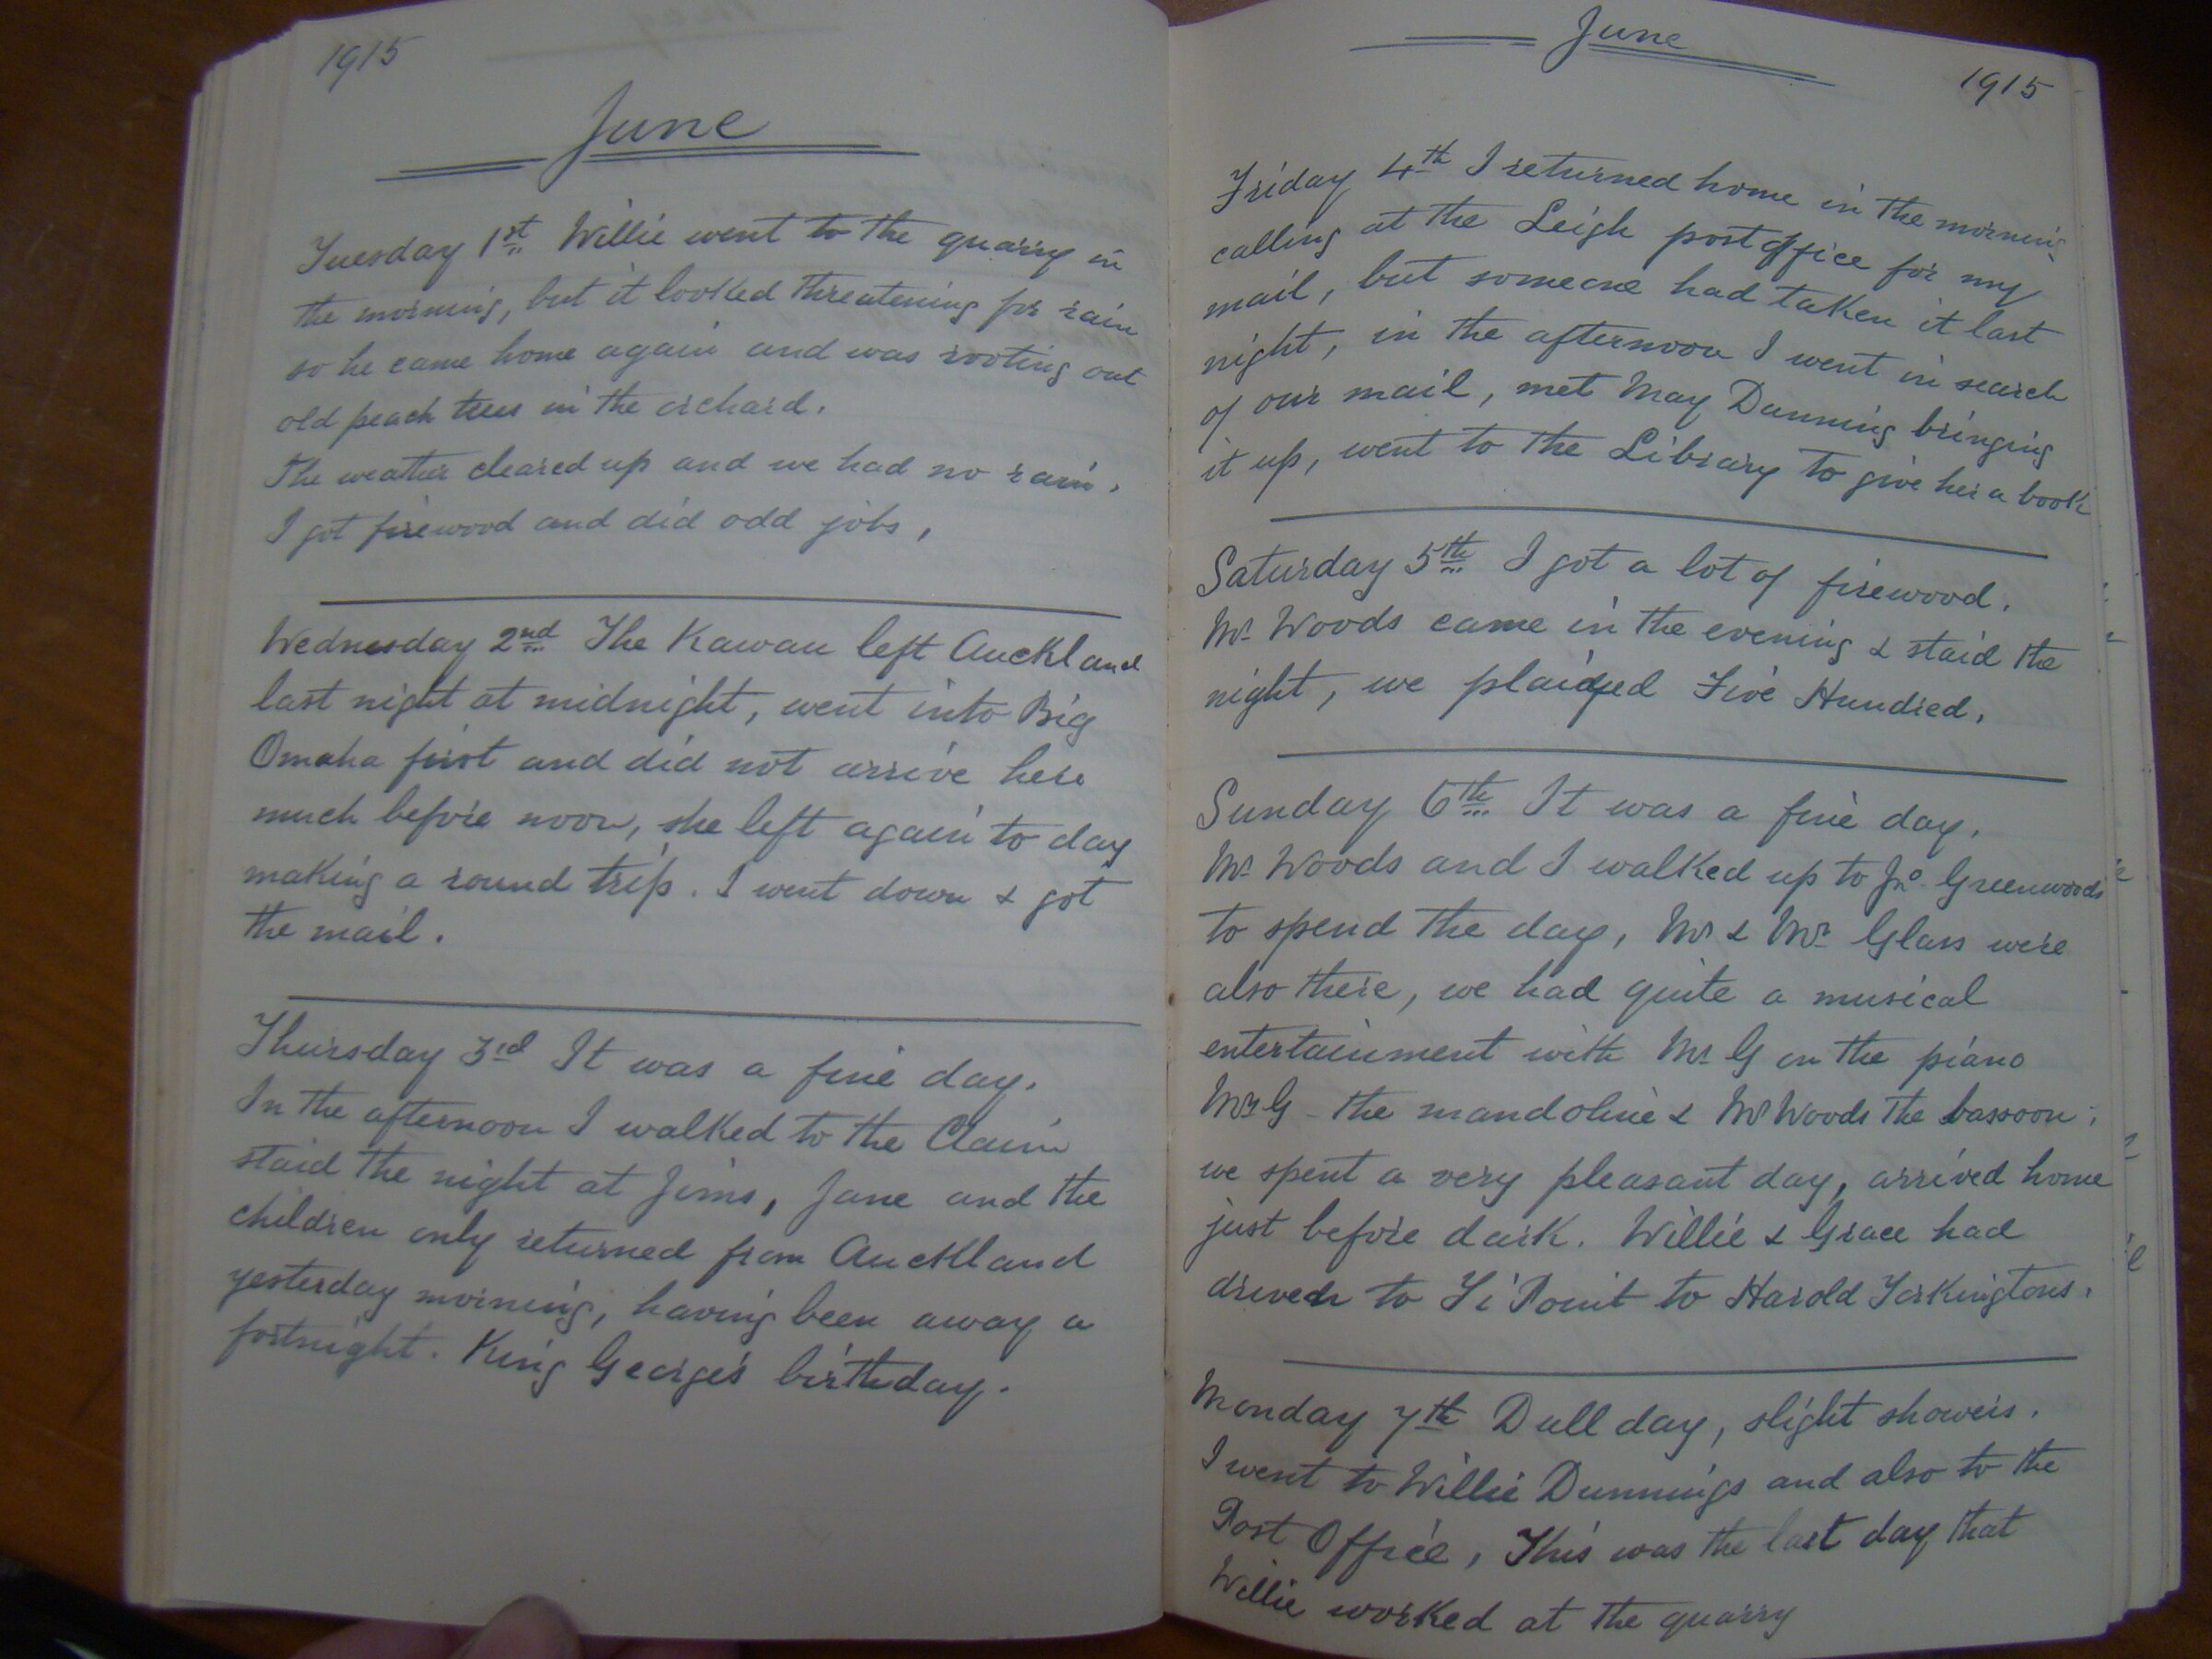 1915
June
Tuesday 1st Willie went to the quarry in
the morning, but it looked threatening for rain
so he came home again and was rooting out
old peach trees in the orchard.
The weather cleared up and we had no rain.
I got firewood and did odd jobs,
Wednesday 2nd The Kawau left Auckland
last night at midnight, went into Big
Omaha first and did not arrive here
much before noon, she left again to day
making a round trip. I went down & got
the mail.
Thursday 3rd It was a fine day.
In the afternoon I walked to the Claim
staid the night at Jims, Jane and the
children only returned from Auckland
yesterday morning, having been away a
fortnight. King George's birthday.
June
1915
Friday 4th I returned home in the morning
calling at the Leigh post office for my
mail, but someone had taken it last
night, in the afternoon I went in search
of our mail, met May Dunning bringing
it up, went to the Library to give her a book
Saturday 5th I got a lot of firewood.
Mr Woods came in the evening & staid the
night, we played Five Hundred.
Sunday 6th It was a fine day.
Mr Woods and I walked up to Jno. Greenwoods
to spend the day, Mr & Mrs Glass were
also there, we had quite a musical
entertainment with Mr G on the piano
Mrs G - the mandoline & Mr Woods the bassoon;
we spent a very pleasant day, arrived home
just before dark. Willie & Grace had
driven to Ti Point to Harold Torkingtons.
Monday 7th Dull day, slight showers.
I went to Willie Dunnings and also to the
Post Office, This was the last day that
Willie worked at the quarry